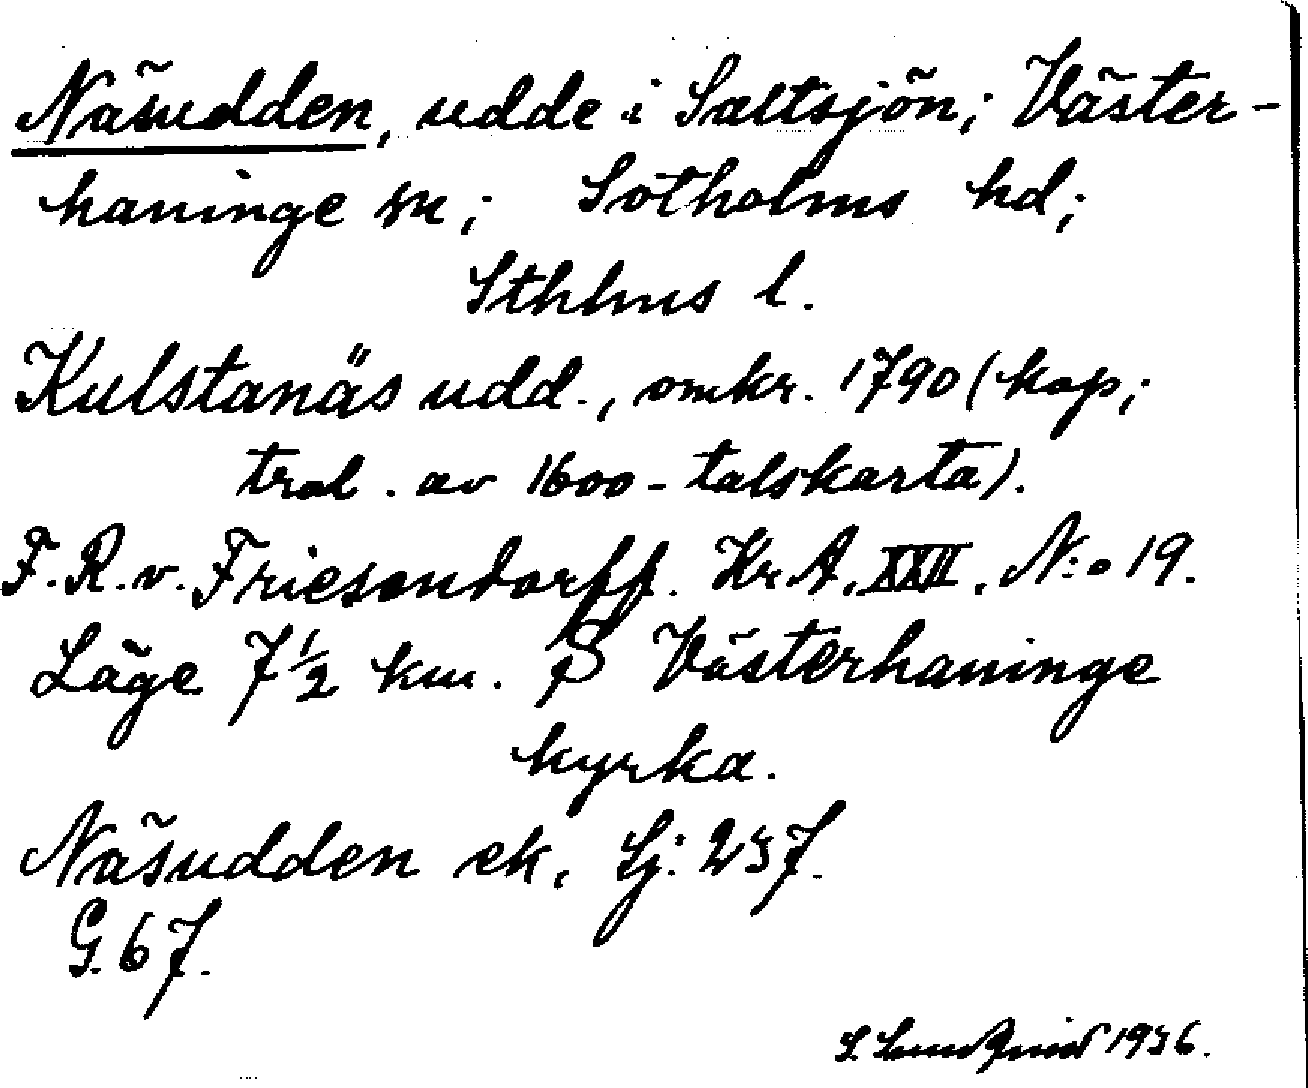 Näsudden, udde i Saltsjön; Väster-
haninge sn; Sotholms hd;
Sthlms l.
Kulstanäs udd., omkr. 1790 (kop;
trol. av 1600-talskarta).
F. R. v. Friesendorff. Kr. A. XXII. N:o 19.
Läge 7½ km. Ö Västerhaninge
kyrka.
Näsudden ek. Sj: 237.
G. 67.
S. Lundqvist 1936.